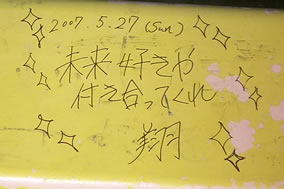 2007.5.27(Sun)
未来好きや
付き合ってくれ
翔